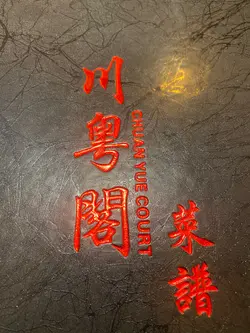 川粤閣
CHUAN YUE COURT
菜譜